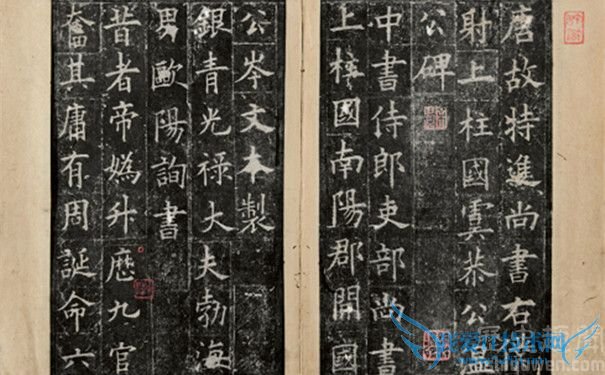 唐故特進尚書右
射上柱國虞恭公溫
公碑
中書侍郎吏部尚書
上柱國南陽郡開國
公岑文本製
銀青光祿大夫勃海
男歐陽詢書
昔者帝媯升歷九官
奮其庸有周誕命六